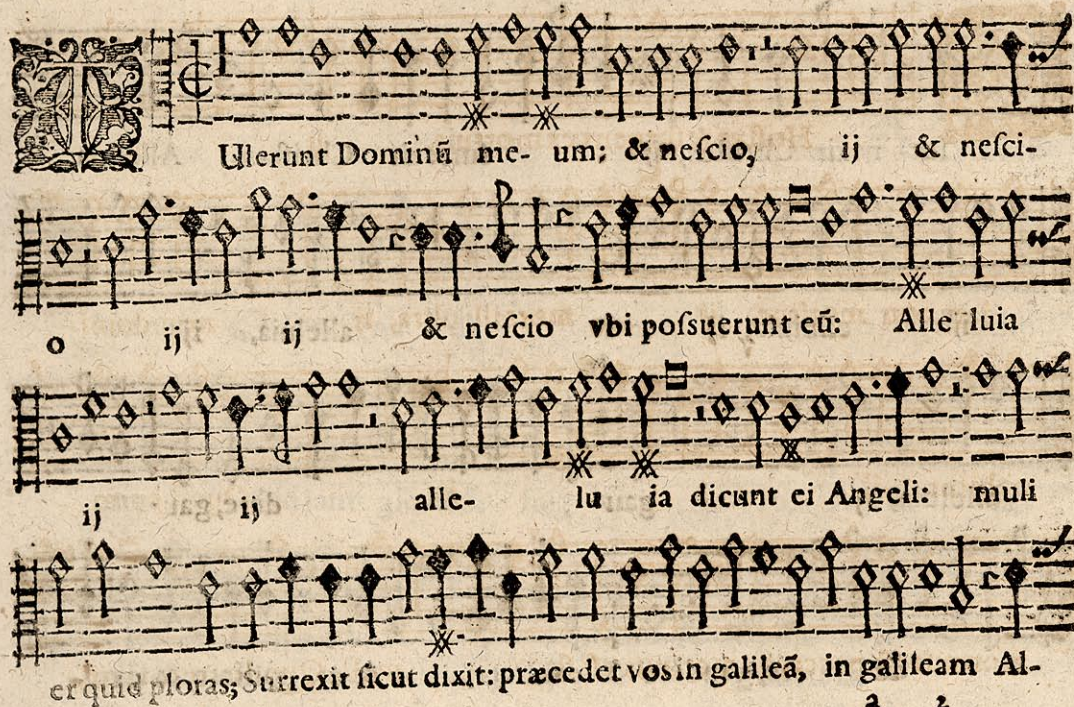 TUlerunt Dominū me- um; & neſcio, ij & neſci-
o ij ij & neſcio vbi poſsuerunt eū: Alle luia
ij ij alle- lu ia dicunt ei Angeli: muli
er quid ploras; Surrexit ſicut dixit: præcedet vos in galileã, in galileam Al-